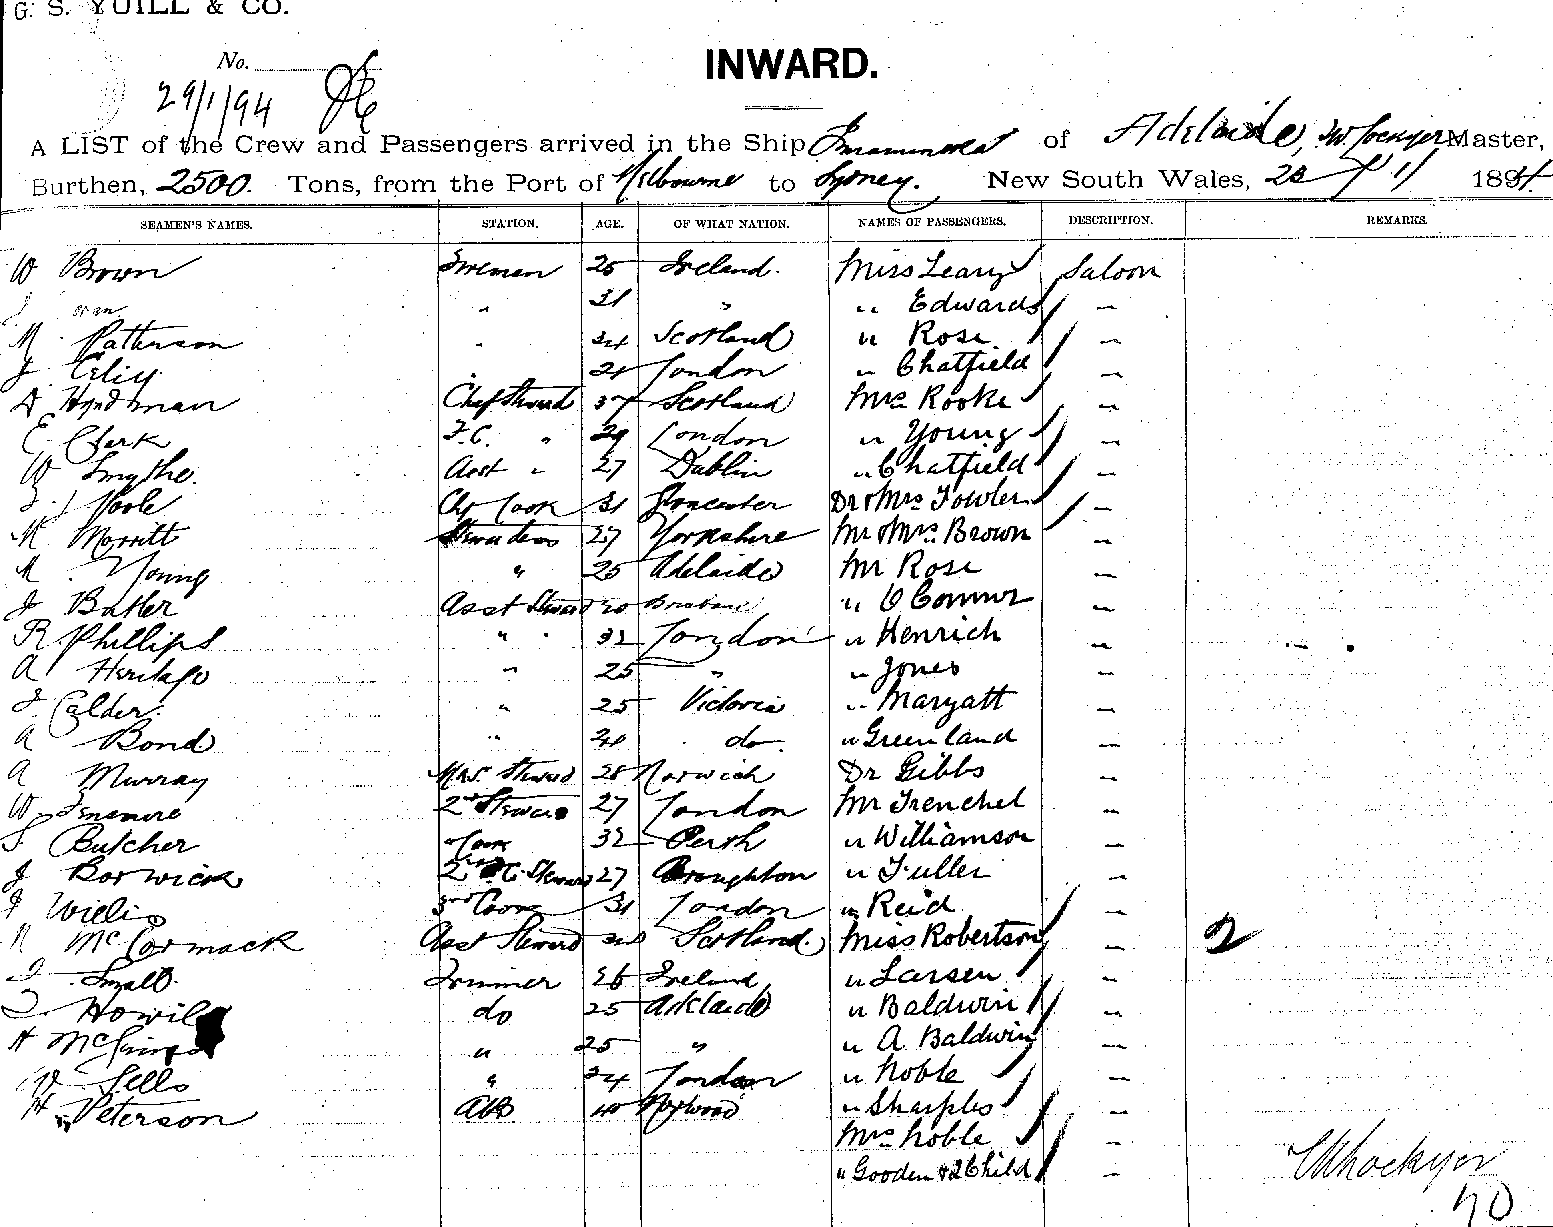 G. S. YUILL & CO.
No.
29/1/94
INWARD.
A LIST of the Crew and Passengers arrived in the Ship of Adelaide, Master,
Burthen, 2500 Tons, from the Port of Melbourne to Sydney. New South Wales, 1894
SEAMEN'S NAMES. STATION. AGE. OF WHAT NATION. NAMES OF PASSENGERS. DESCRIPTION. REMARKS.
W Brown Fireman 25 Ireland. Miss Leary Saloon
" 31 " " Edwards "
M Patterson " 34 Scotland " Rose "
J London " Chatfield "
Hyndman Chief Steward 37 Scotland Mrs Rooke "
E Clark F.C. " 29 London " Young "
W Smythe. Asst " 27 Dublin " Chatfield "
Poole Cook 31 Gloucester Dr & Mrs Fowler "
M Morritt Stewardess 27 Yorkshire Mr & Mrs Brown "
M Young " 25 Adelaide Mr Rose "
J Butler Asst Steward 20 Brisbane " O Connor "
R Phillips " 32 London " Henrich "
A Heritage " 25 " " Jones "
J Calder. " 25 Victoria " Maryatt "
A Bond " do. " Greenland "
A Murray Steward 28 Norwich Dr Gibbs "
W 2nd Steward 27 London Mr Frenchel "
S Butcher " Cook 32 Perth " Williamson "
J Borwick 2nd C. Steward 27 Broughton " Fuller "
J Willis 3rd Cook 31 London " Reid "
McCormack Asst Steward Scotland. Miss Robertson " 2
Small. Trimmer 26 Ireland " Larsen "
do 25 Adelaide " Baldwin "
H " 25 " " A. Baldwin "
W Sells " 24 London " Noble "
H Peterson AB 40 Norwood " Sharples "
Mrs Noble "
" Gooden & 2 Child "
70